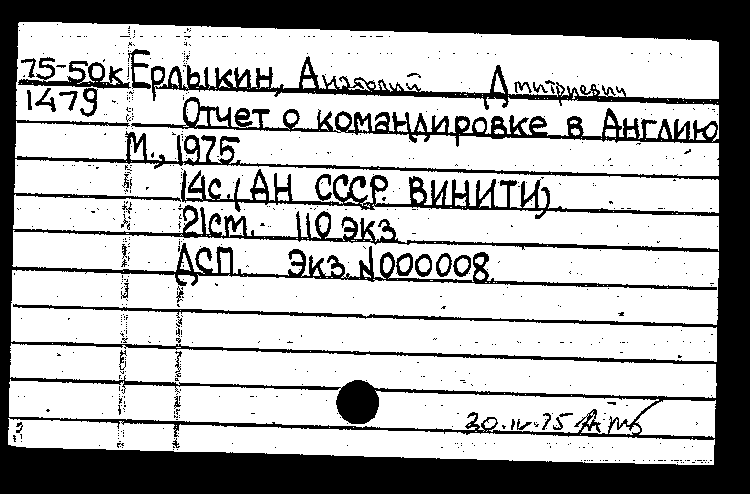 75-50к Ерлыкин, Анатолий Дмитриевич
1479 Отчет о командировке в Англию
М., 1975.
14с. (АН СССР. ВИНИТИ).
21см. 110 экз.
ДСП. Экз. №000008.
20.IV.75